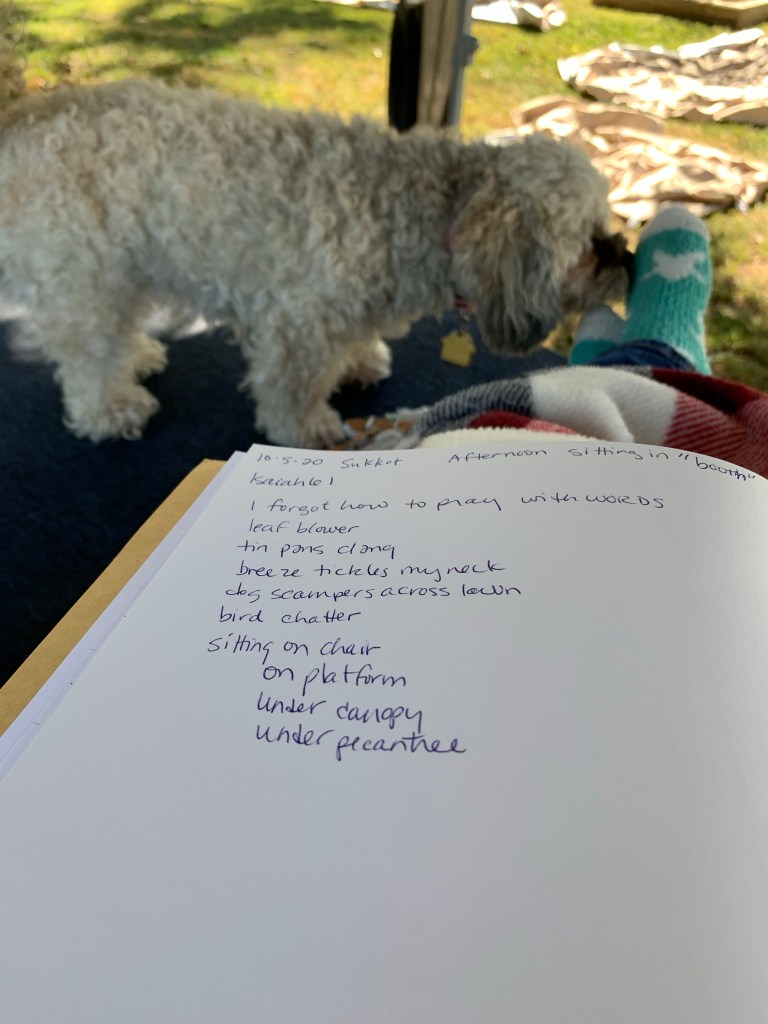 10.5.20 Sukkot Afternoon sitting in "booth"
Isaiah 61
I forgot how to pray with WORDS
leaf blower
tin pans clang
breeze tickles my neck
dog scampers across lawn
bird chatter
sitting on chair
on platform
under canopy
under pecantree